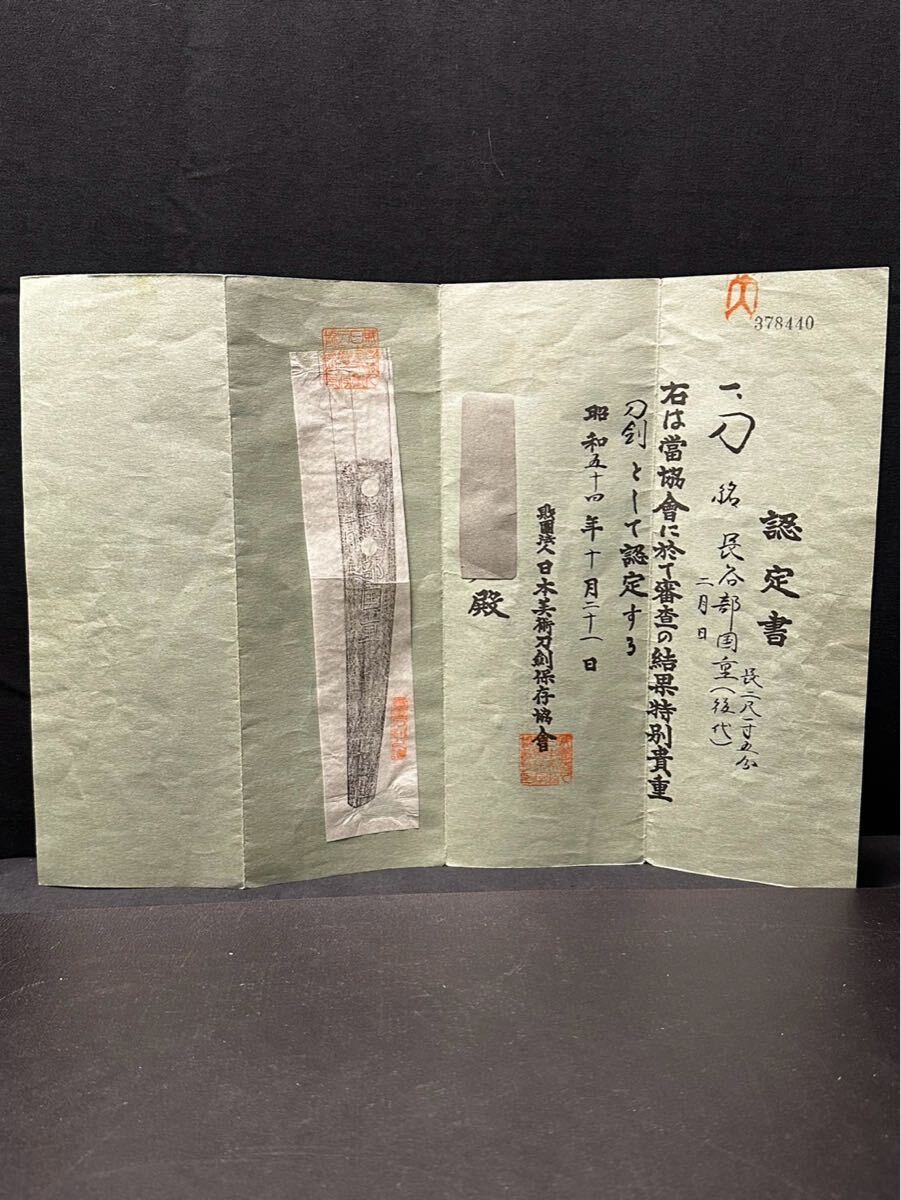 378440
認定書
一、刀 銘 長谷部国重(後代)
二月日
長二尺一寸五分
右は當協會に於て審査の結果特別貴重
刀剣として認定する
昭和五十四年十月二十一日
財團法人日本美術刀剣保存協會
殿